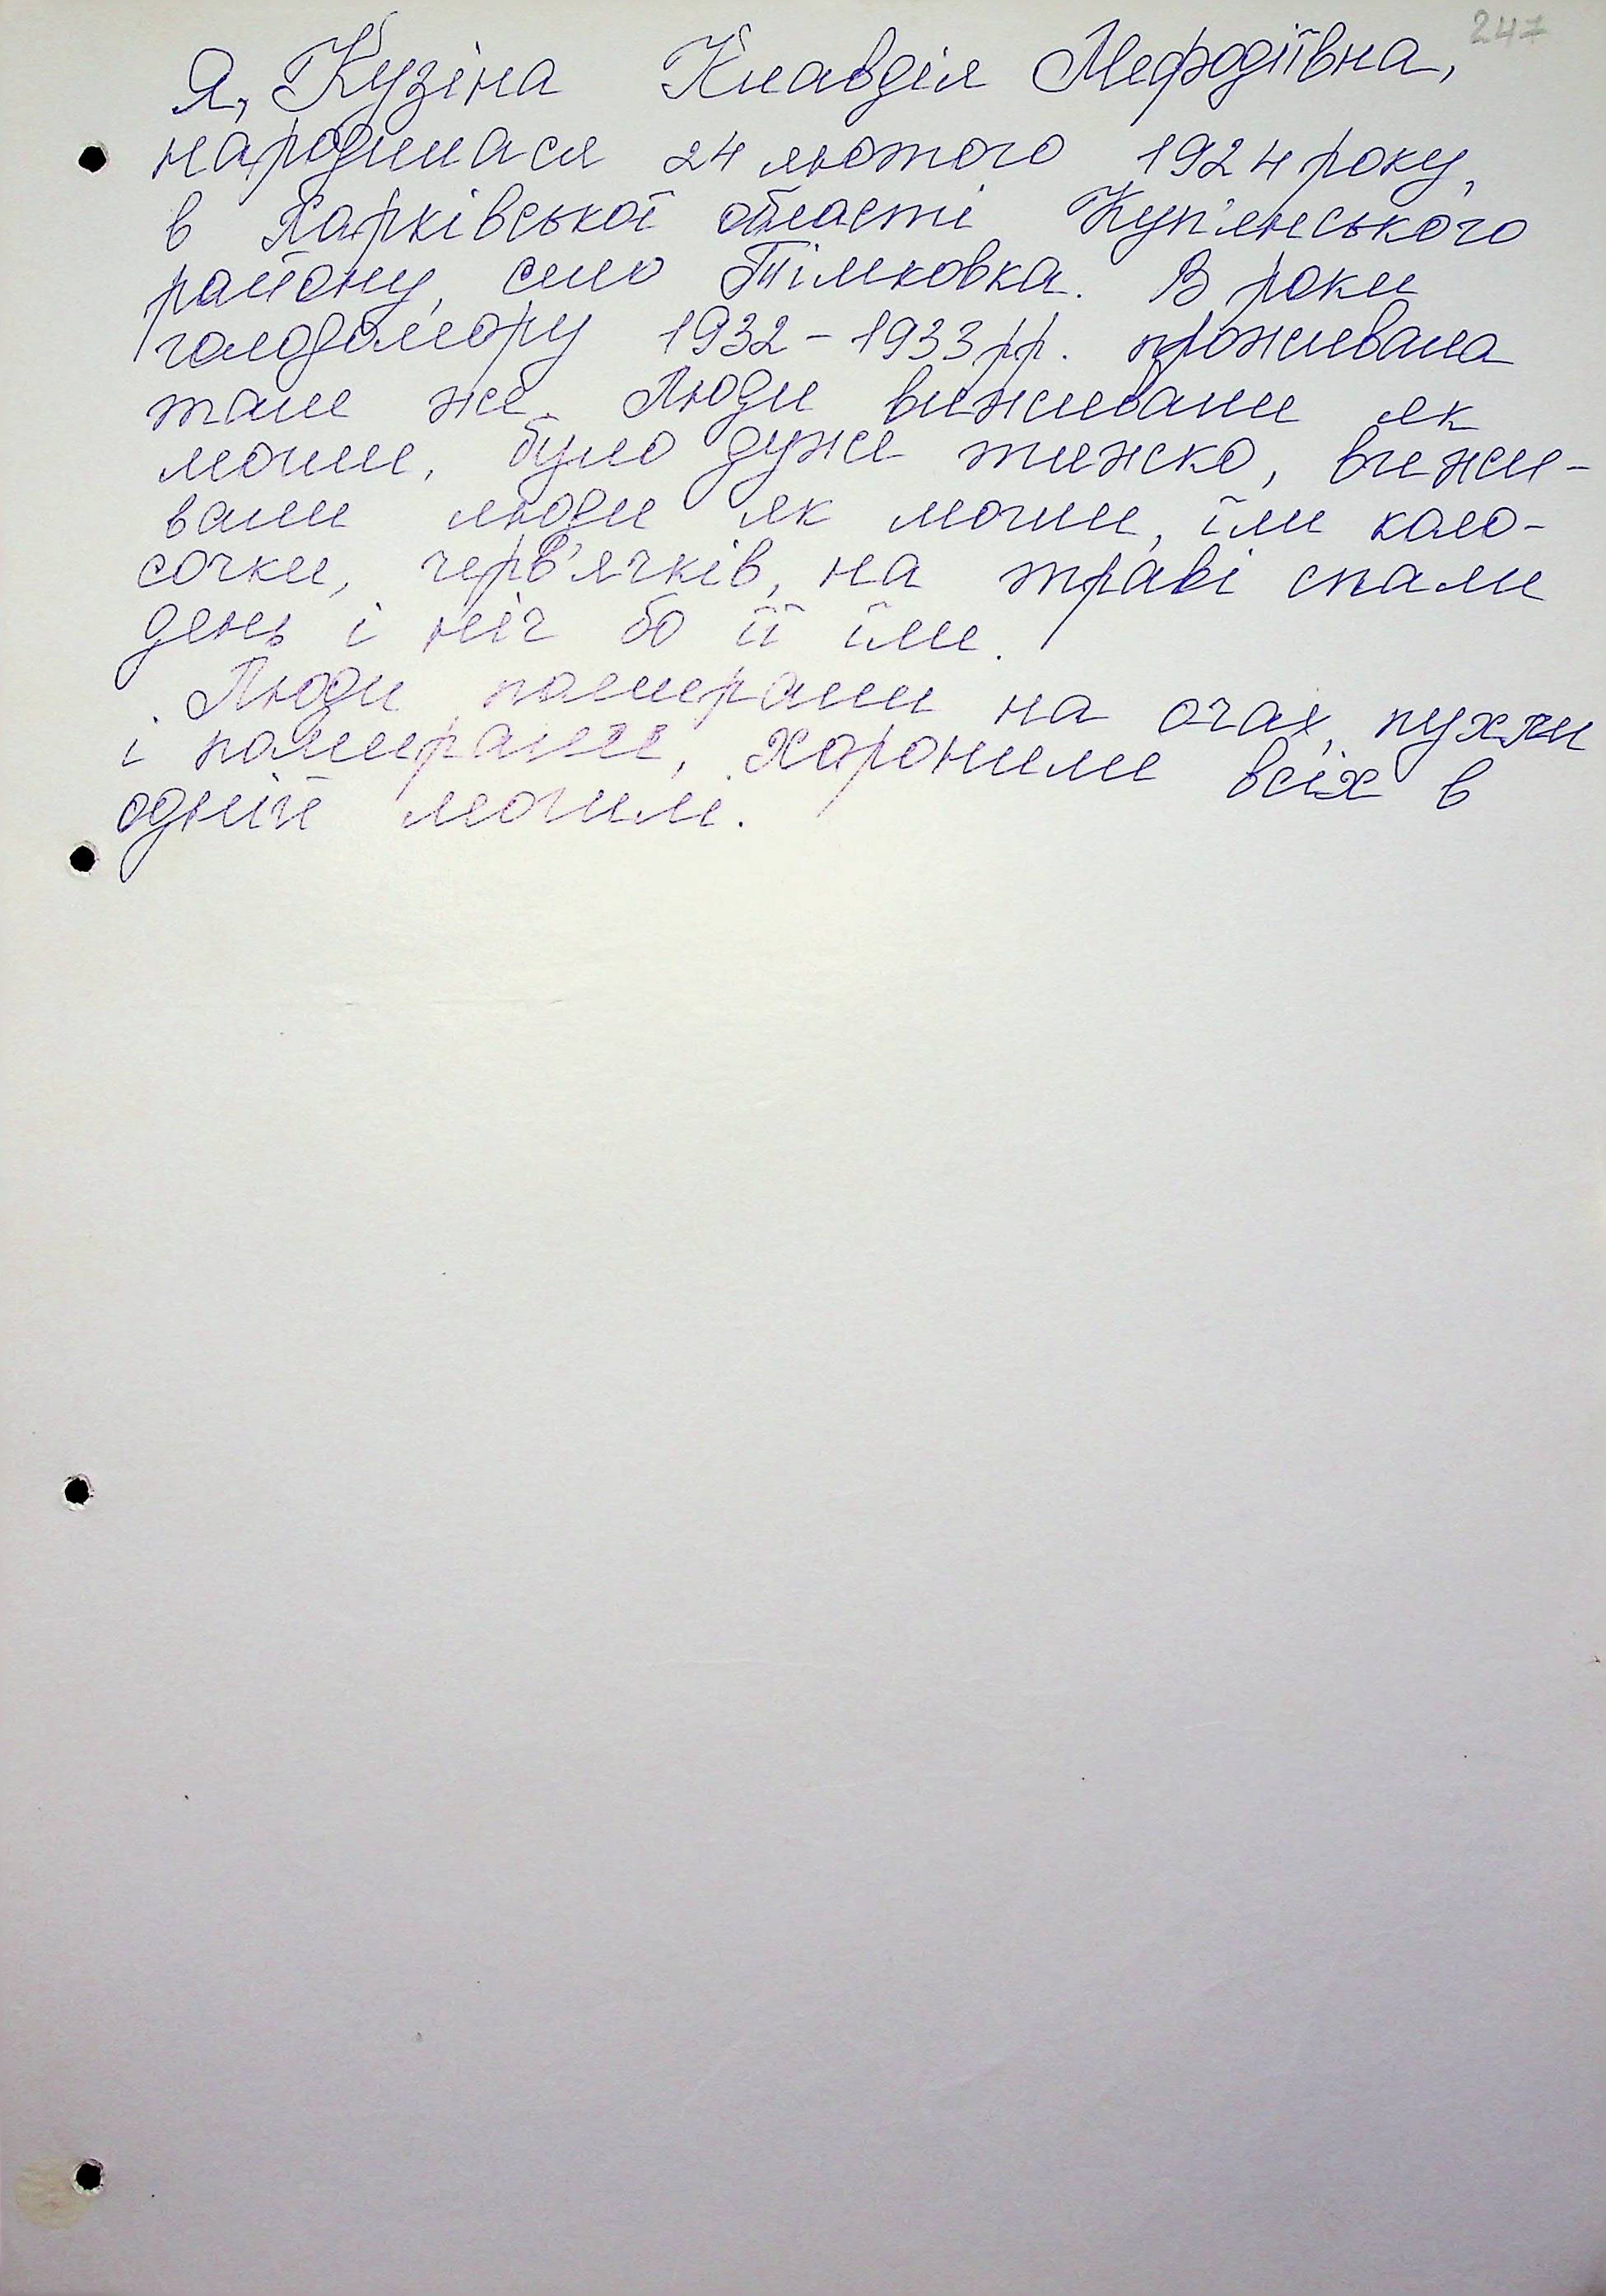 247
Я, Кузіна Клавдія Мефодіївна,
народилася 24 лютого 1924 року,
в Харківської області Куп'янського
району, село Тімковка. В роки
голодомору 1932-1933 рр. проживала
там же. Люди виживали як
могли, було дуже тижко, вижи-
вали люди як могли, їли коло-
сочки, черв'ячків, на траві спали
день і ніч бо її їли.
Люди помирали на очах, пухли
і помирали, Хоронили всіх в
одній могилі.